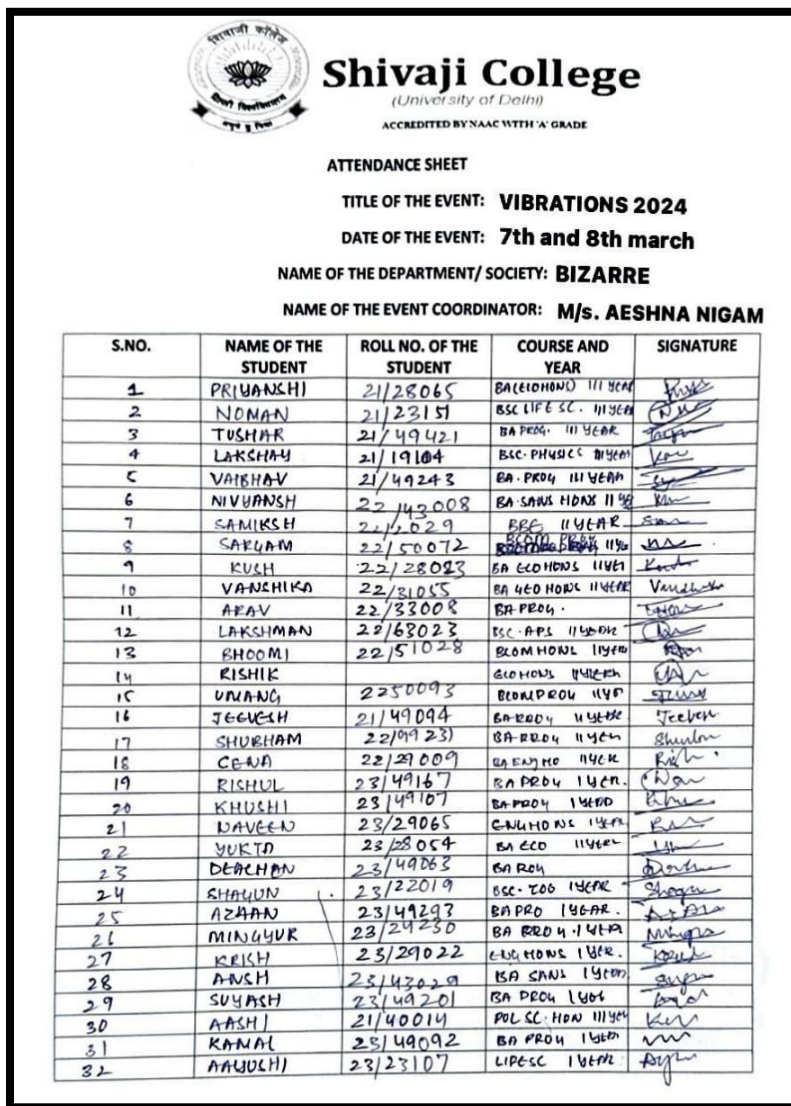 शिवाजी कॉलेज
Shivaji College
(University of Delhi)
ACCREDITED BY NAAC WITH 'A' GRADE
ATTENDANCE SHEET
TITLE OF THE EVENT: VIBRATIONS 2024
DATE OF THE EVENT: 7th and 8th march
NAME OF THE DEPARTMENT/ SOCIETY: BIZARRE
NAME OF THE EVENT COORDINATOR: M/s. AESHNA NIGAM
S.NO. NAME OF THE STUDENT ROLL NO. OF THE STUDENT COURSE AND YEAR SIGNATURE
1 PRIYANSHI 21/28065 III YEAR
2 NOMAN BSC LIFE SC. III YEAR
3 TUSHAR 21/49421 BA PROG. III YEAR
4 LAKSHAY 21/19104 BSC. PHYSICS III YEAR
5 VAIBHAV 21/49243 BA. PROG III YEAR
6 NIVYANSH 22/43008 BA. SANS HONS II YE
7 SAMIKSH BBE II YEAR
8 SARGAM 22/50072 BCOM PROG II YE
9 KUSH BA ECO HONS II YE
10 VANSHIKA 22/31055 BA GEO HONS II YEAR
11 ARAV 22/33008 BA PROG.
12 LAKSHMAN 22/63023 BSC. APS II YEAR
13 BHOOMI 22/51028 BCOM HONS II YEA
14 RISHIK
15 UMANG 2250093 BCOM PROG II YE
16 JEEVESH 21/49094 II YEAR Jeevesh
17 SHUBHAM II YEA
18 CENA 22/29009 II YEAR
19 RISHUL 23/49167 BA PROG I YEAR.
20 KHUSHI 23/49107 BA PROG I YEAR
21 NAVEEN 23/29065 ENG HONS I YEAR
22 YUKTA 23/28054 BA ECO
23 DEACHAN 23/49063
24 SHAGUN 23/22019 BSC. ZOO I YEAR
25 AZAAN 23/49293 BA PRO I YEAR.
26 MINGYUR I YEA
27 KRISH 23/29022 ENG HONS I YEAR.
28 ANSH 23/43029 BA SANS I YEAR
29 SUYASH 23/49201 BA PROG
30 AASHI 21/40014 POL SC. HON III YEA
31 KAMAL 23/49092 BA PROG I YEAR
32 AAYUSHI 23/23107 LIFESC I YEAR